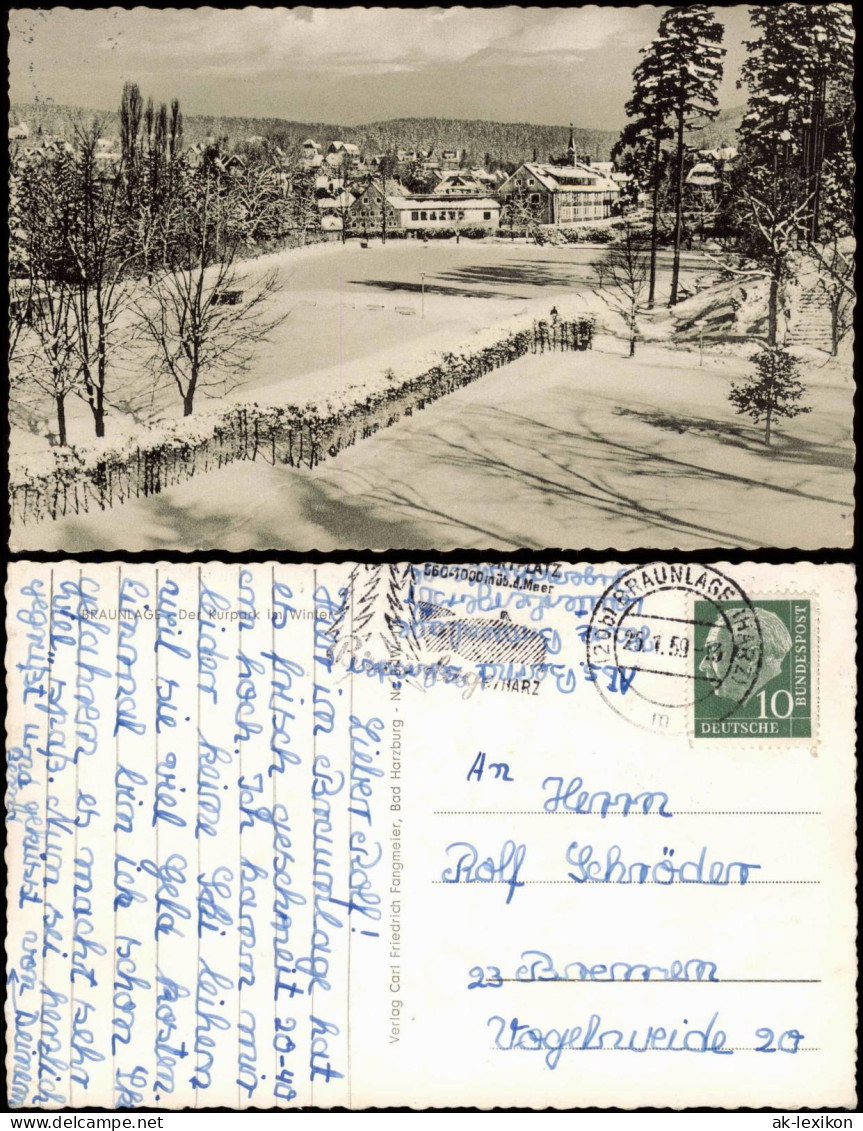 BRAUNLAGE - Der Kurpark im Winter
Lieber Rolf!
Hier in Braunlage hat
es frisch geschneit 20-40
cm hoch. Ich kann mir
leider keine Schi leihen
weil sie viel Geld kosten.
Einmal bin ich schon Schi
gefahren es macht sehr
viel Spaß. Nun sei herzlich
gegrüßt und geküßt von Deinem
Verlag Carl Friedrich Fangmeier, Bad Harzburg - Nr.
560-1000 m üb. d. Meer
Braunlage/HARZ
(20b) BRAUNLAGE (HARZ)
25.1.59.-13
m
10
DEUTSCHE
BUNDESPOST
An
Herrn
Rolf Schröder
23 Bremen
Vogelweide 20
ak-lexikon